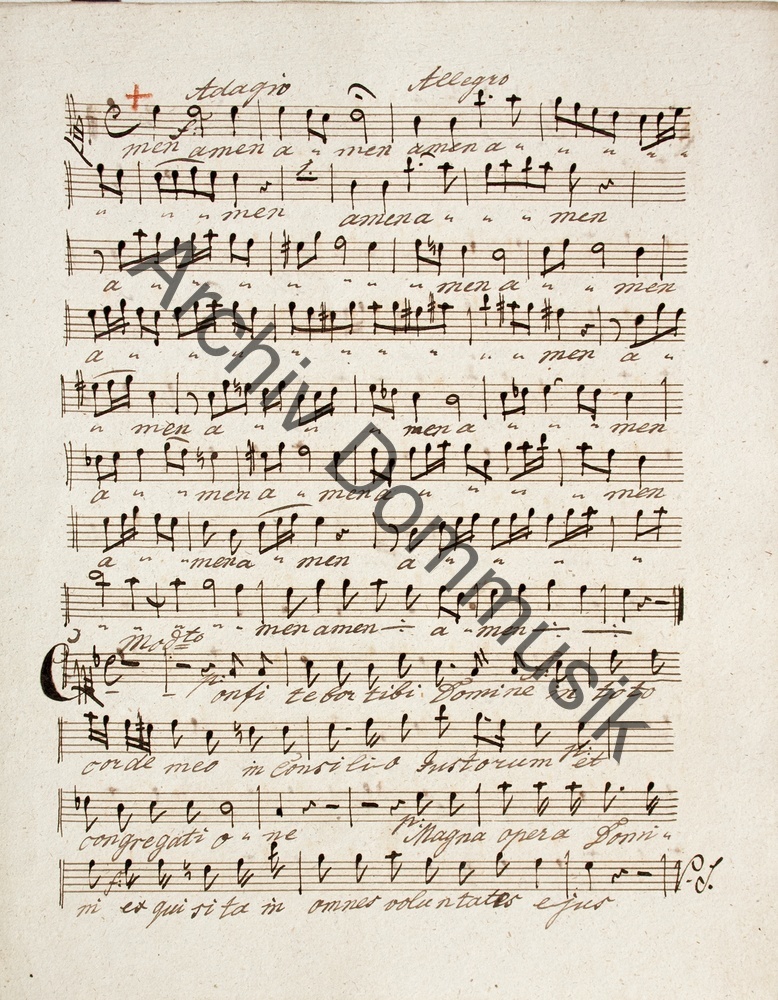 Adagio Allegro
men amen a " men amen a " " " " " "
" " " men amen a " " " men
a " " " " " " " men a " " men
a " " " " " " " " " men a "
" men a " " " men a " " " men
a " " men a " men a " " " " men
a " " men a " men a " " " "
" " " " " men amen a " men
Modto
Confi tebor tibi Domine in toto
corde meo in Consili o Iustorum et
congregati o " ne Magna opera Domi "
ni exquisita in omnes voluntates ejus
V. S.
Archiv Dommusik